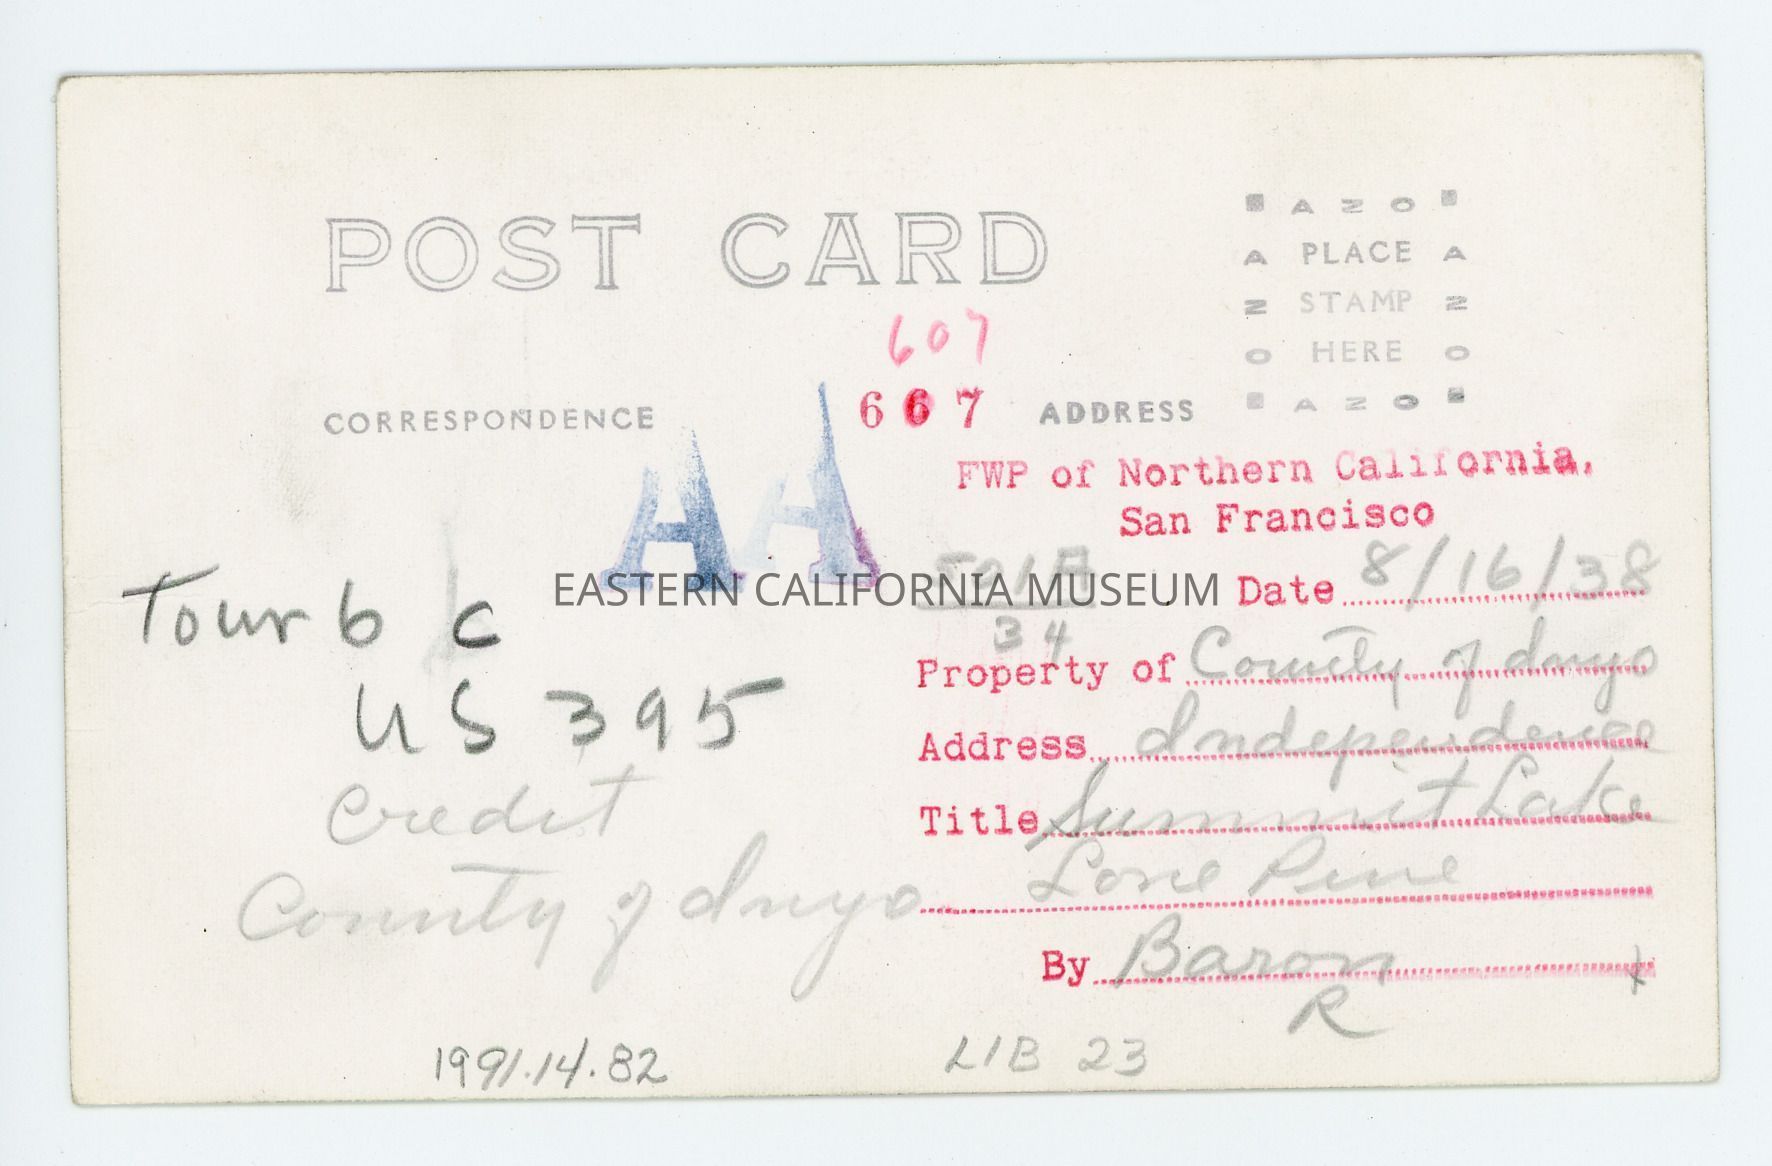 POST CARD
AZO
A PLACE A
Z STAMP Z
O HERE O
AZO
607
667
CORRESPONDENCE
ADDRESS
AA
FWP of Northern California,
San Francisco
501A
34
EASTERN CALIFORNIA MUSEUM
Date 8/16/38
Tour 6 c
US 395
Credit
County of Inyo
Property of County of Inyo
Address Independence
Title Summit Lake
Lone Pine
By Baron
R
1991.14.82
LIB 23